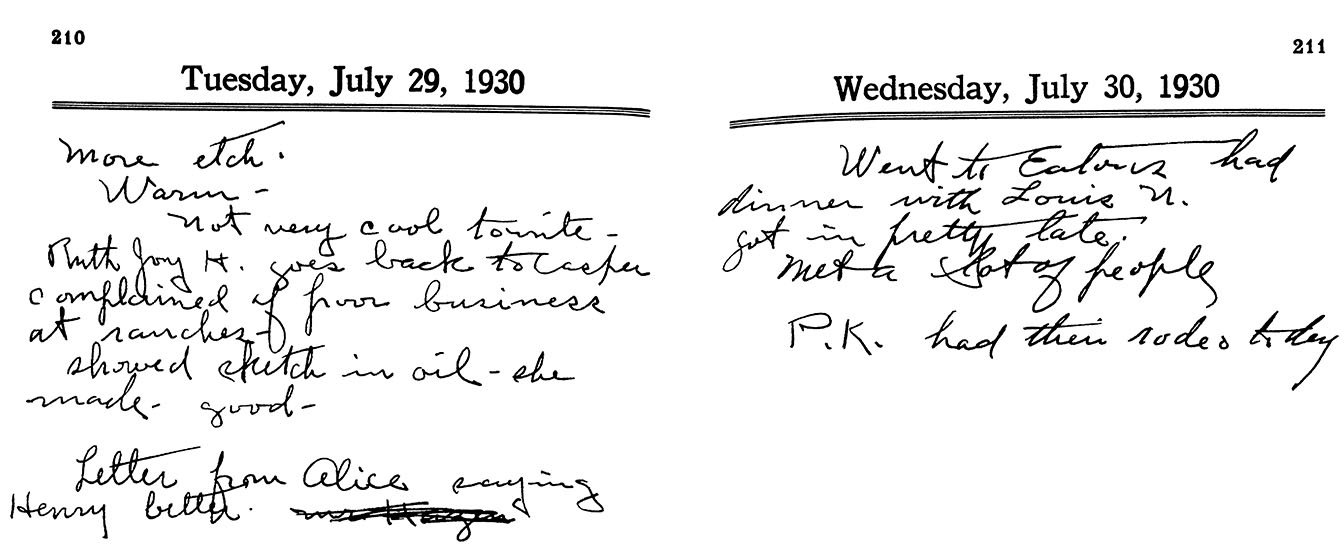 210
Tuesday, July 29, 1930
More etch.
Warm -
not very cool tonite -
Ruth Joy H. goes back to Casper
complained of poor business
at ranches -
showed sketch in oil - she
made - good -
Letter from Alice saying
Henry better.
211
Wednesday, July 30, 1930
Went to Eatons had
dinner with Louis N.
got in pretty late.
Met a lot of people
P.K. had their rodeo today